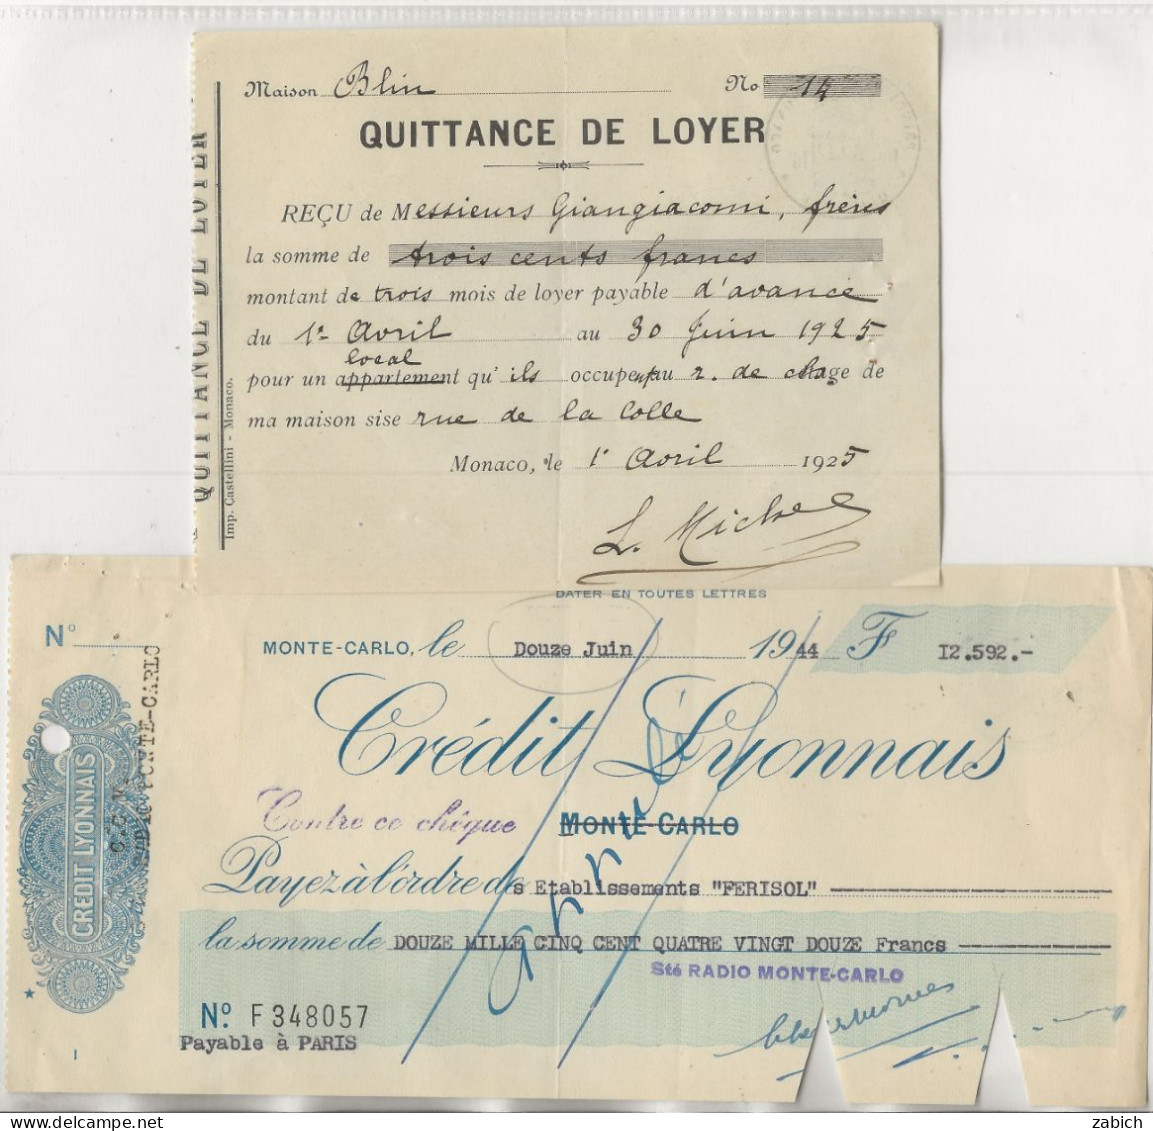 Maison Blin No 14
QUITTANCE DE LOYER
REÇU de Messieurs Giangiacomi, frères
la somme de trois cents francs
montant de trois mois de loyer payable d'avance
du 1er Avril au 30 Juin 1925
local
pour un appartement qu'ils occupent au r. de chage de
ma maison sise rue de la Colle
Monaco, le 1r Avril 1925
L. Michel
QUITTANCE DE LOYER
Imp. Castellini - Monaco.
DATER EN TOUTES LETTRES
N°
MONTE-CARLO, le Douze Juin 1944 F 12.592.-
Crédit Lyonnais
Contre ce chèque MONTE-CARLO
Payez à l'ordre des Etablissements "FERISOL"
la somme de DOUZE MILLE CINQ CENT QUATRE VINGT DOUZE Francs
Sté RADIO MONTE-CARLO
No. F 348057
Payable à PARIS
I
annulé
CREDIT LYONNAIS
MONTE-CARLO
zabich